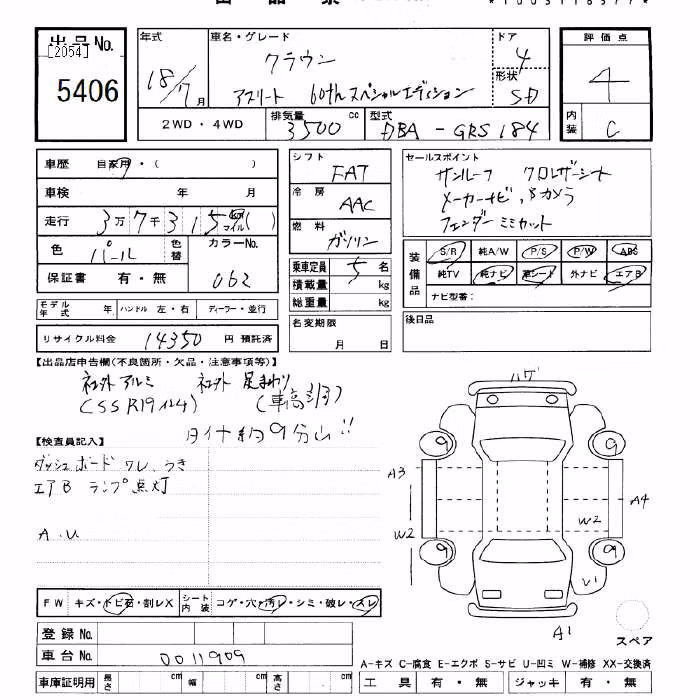 出品No.
[2054]
5406
年式 18/7月
車名・グレード クラウン
アスリート 60thスペシャルエディション
ドア 4
形状 SD
評価点
4
内装 C
2WD・4WD
排気量 3500 cc
型式 DBA-GRS184
車歴 自家用・( )
車検 年 月
走行 3万7千315 km マイル ( )
色 パール 色替 カラーNo. 062
保証書 有・無
モデル年式 年 ハンドル 左・右 ディーラー・並行
リサイクル料金 14350 円 預託済
シフト FAT
冷房 AAC
燃料 ガソリン
乗車定員 5 名
積載量 kg
総重量 kg
名変期限 月 日
セールスポイント
サンルーフ クロレザーシート
メーカーナビ、Bカメラ
フェンダーミミカット
装備品 S/R 純A/W P/S P/W ABS
純TV 純ナビ 革シート 外ナビ エアB
ナビ型番:
後日品
【出品店申告欄(不良箇所・欠品・注意事項等)】
社外アルミ 社外足まわり
(SSR19インチ) (車高調)
タイヤ約9分山!!
【検査員記入】
ダッシュボードワレ、うき
エアB ランプ点灯
A.U
ハゲ
9
9
A3
A4
W2
W2
9
9
U1
A1
スペア
FW キズ・トビ石・割レX シート内装 コゲ・穴・汚レ・シミ・破レ・スレ
登録No.
車台No. 0011909
車庫証明用 長さ cm 幅 cm 高さ cm
A-キズ C-腐食 E-エクボ S-サビ U-凹ミ W-補修 XX-交換済
工具 有・無 ジャッキ 有・無